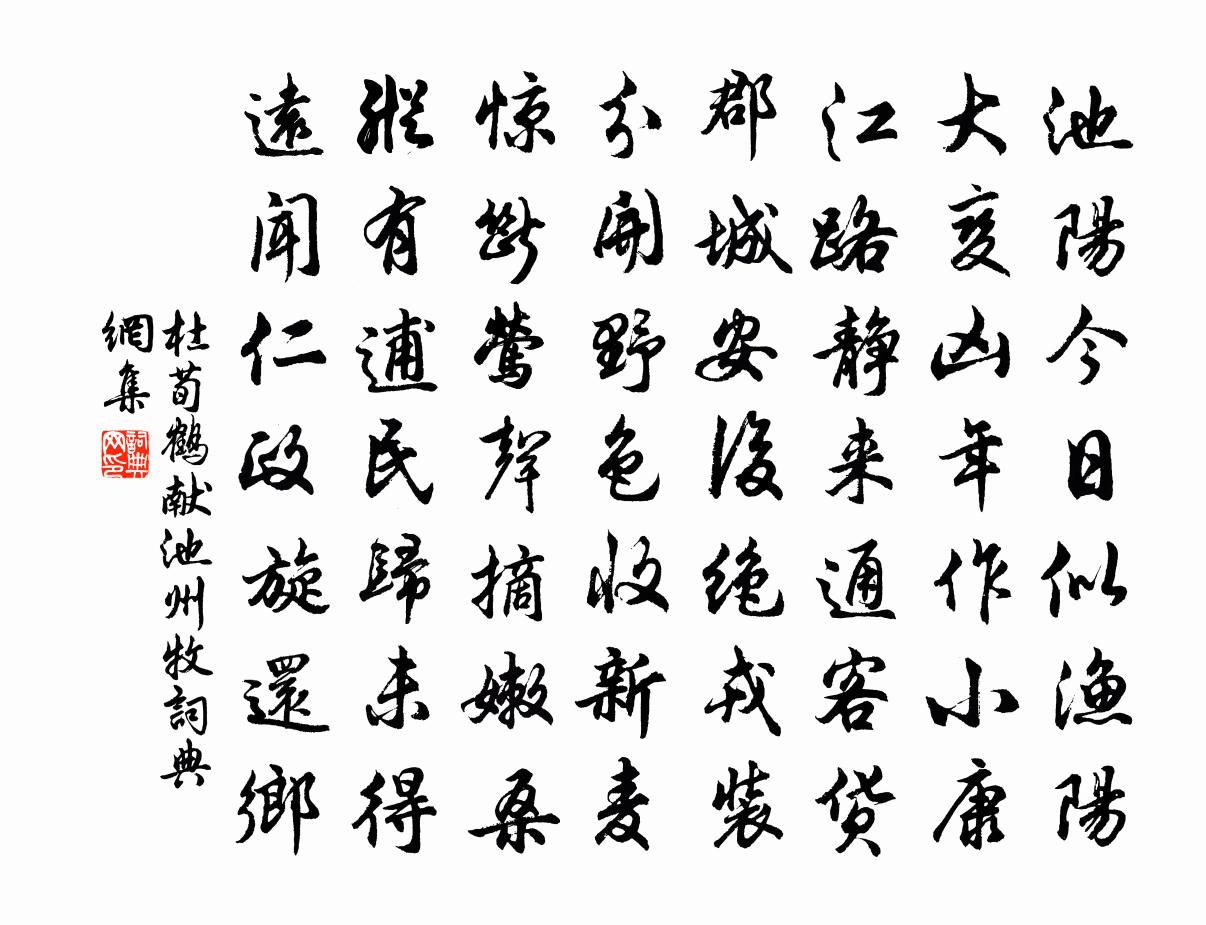 池陽今日似漁陽
大变凶年作小康
江路静来通客货
郡城安後绝戎装
分開野色收新麦
惊斷莺聲摘嫩桑
縱有逋民歸未得
遠聞仁政旋還鄉
杜荀鶴献池州牧詞典
網集
詞典
网印